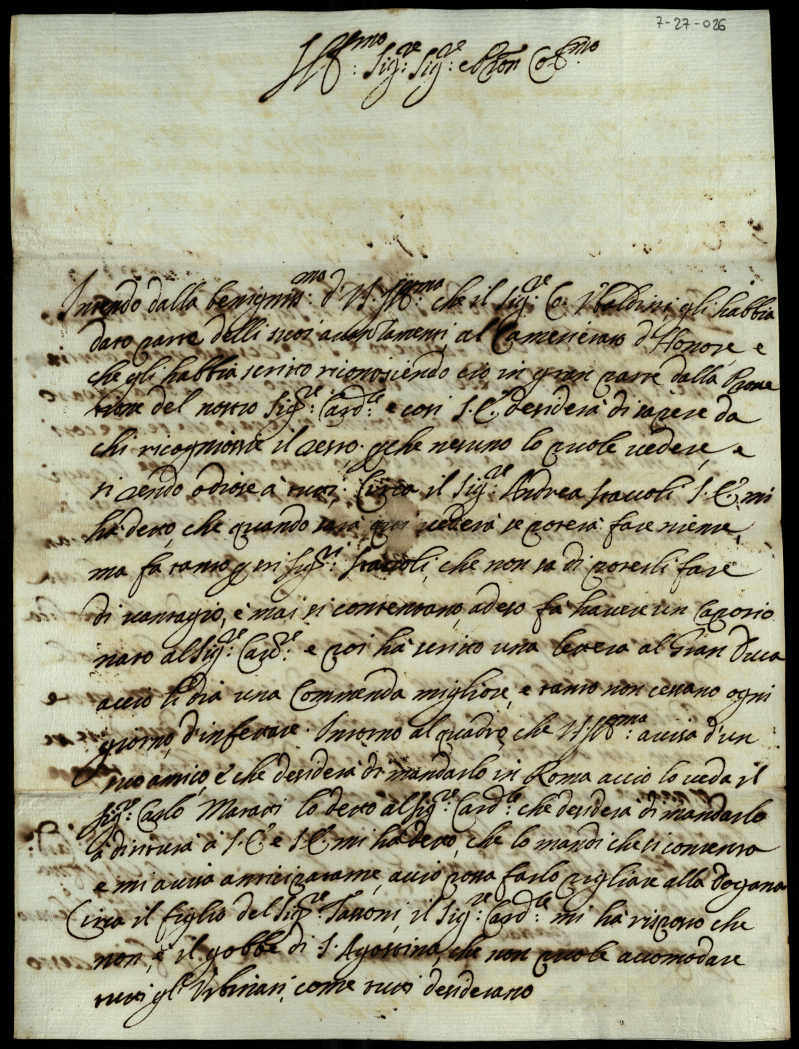 7-27-026
Ill:mo Sig:re Sig:re e Pron Col:mo
Intendo dalla benigniss:ma d'V.S. Ill:ma che il Sig:re Co. Vbaldini gli habbia
dato parte delli suoi auantamenti, al Camerierato d'Honore e
che gli habbia scritto riconoscendo ciò in gran parte dalla Prote
tione del nostro Sig:re Card:le e così S. E. desidera di sapere da
chi ricognioscie il resto, perche nesuno lo puole uedere, e
si rende odioso à tutti, Circa il Sig:re Andrea Staccoli S. E. mi
hà detto, che quando sarà qui uederà se poterà fare niente,
ma fa tanto per si Sig:ri Staccoli, che non sa di poterli fare
di uantagio, e mai si contentano, adesso fa hauere un Caporio
nato al Sig:re Car:le e poi hà scritto una lettera al Gran Duca
acciò li dia una Commenda migliore, e tanto non cessano ogni
giorno, d'infestare. Intorno al quadro, che V.S. Ill:ma auisa d'un
suo amico, e che desidera di mandarlo in Roma acciò lo ueda il
Sig:re Carlo Maratti lo detto al Sig:re Card:le che desidera di mandarlo
à diritura à S. E. e S. E. mi hà detto, che lo mandi che si contenta
e mi auisa anticipatamte, acciò possa farlo pigliare alla Dogana
Circa il figlio del Sig:re Tassoni, il Sig:re Card:le mi hà risposto che
non, è il gobbo di S. Agostino, che non puole accomodare
tutti gl'Vrbinati, come tutti desiderano